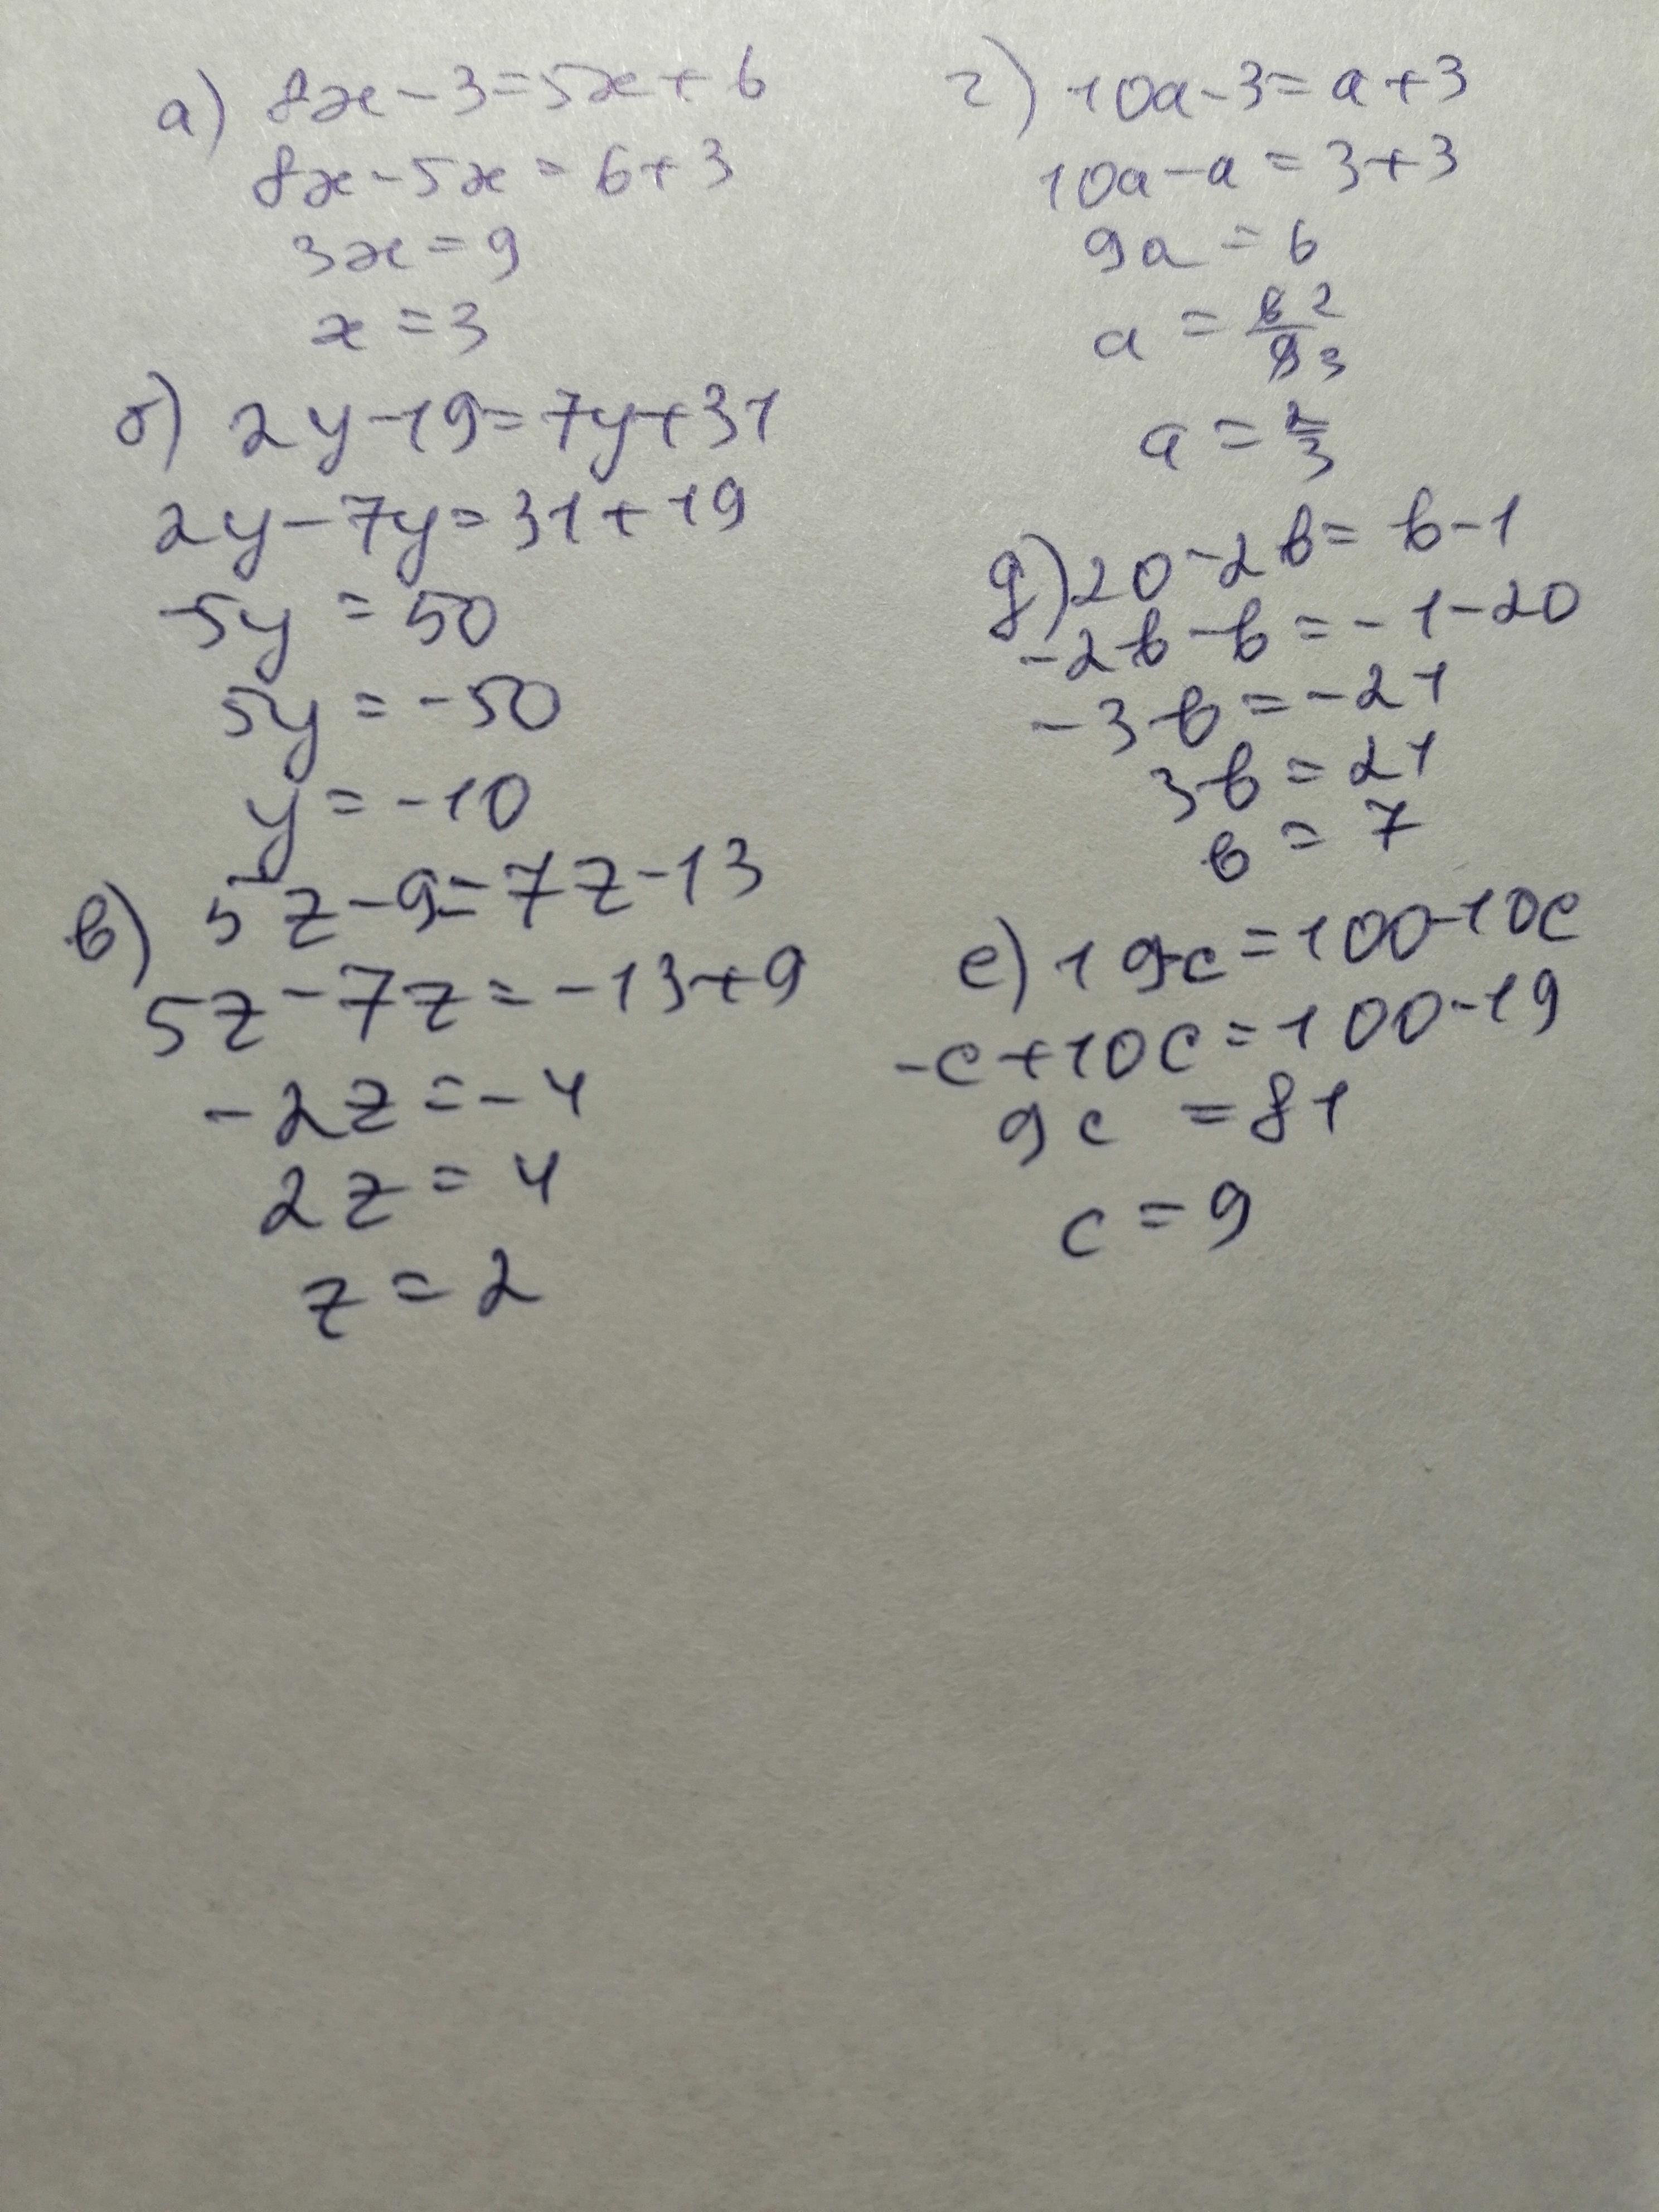 а) 8x - 3 = 5x + 6
8x - 5x = 6 + 3
3x = 9
x = 3
б) 2y - 19 = 7y + 31
2y - 7y = 31 + 19
-5y = 50
5y = -50
y = -10
в) 5z - 9 = 7z - 13
5z - 7z = -13 + 9
-2z = -4
2z = 4
z = 2
г) 10a - 3 = a + 3
10a - a = 3 + 3
9a = 6
a = 6 2 / 9 3
a = 2/3
д) 20 - 2b = b - 1
-2b - b = -1 - 20
-3b = -21
3b = 21
b = 7
е) 19-c = 100-10c
-c + 10c = 100 - 19
9c = 81
c = 9